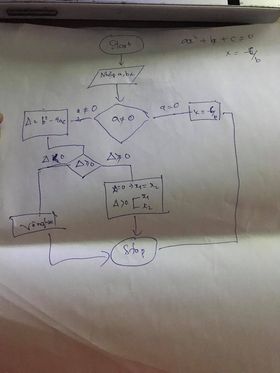 Start
ax² + bx + c = 0
x = -c/b
Nhập a,b,c
a ≠ 0
a = 0
Δ = b² - 4ac
a ≠ 0
x = -c/b
Δ < 0
Δ ≥ 0
Δ ≥ 0
Δ = 0 → x₁ = x₂
Δ > 0 [ x₁
x₂
Vô nghiệm
Stop